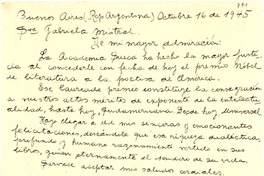 Buenos Aires (Rep Argentina) Octubre 16 de 1945
Sra Gabriela Mistral.
De mi mayor admiración:
La Academia Sueca ha hecho la mayor justi
cia al concederle con fecha de hoy el premio Nóbel
de literatura a la poetisa de América.
Ese laureado premio constituye la consagración
a nuestro astro mérito de exponente de la intelectu
alidad, hasta hoy, Sudamericana. Desde hoy, Universal
Hago llegar a Ud mis sinceras y emocionantes
felicitaciones, deseándole que esa riqueza dialéctica,
profundo y humano razonamiento vertido en sus
libros, guíen eternamente el sendero de su vida.
Sírvase aceptar mis saludos cordiales.